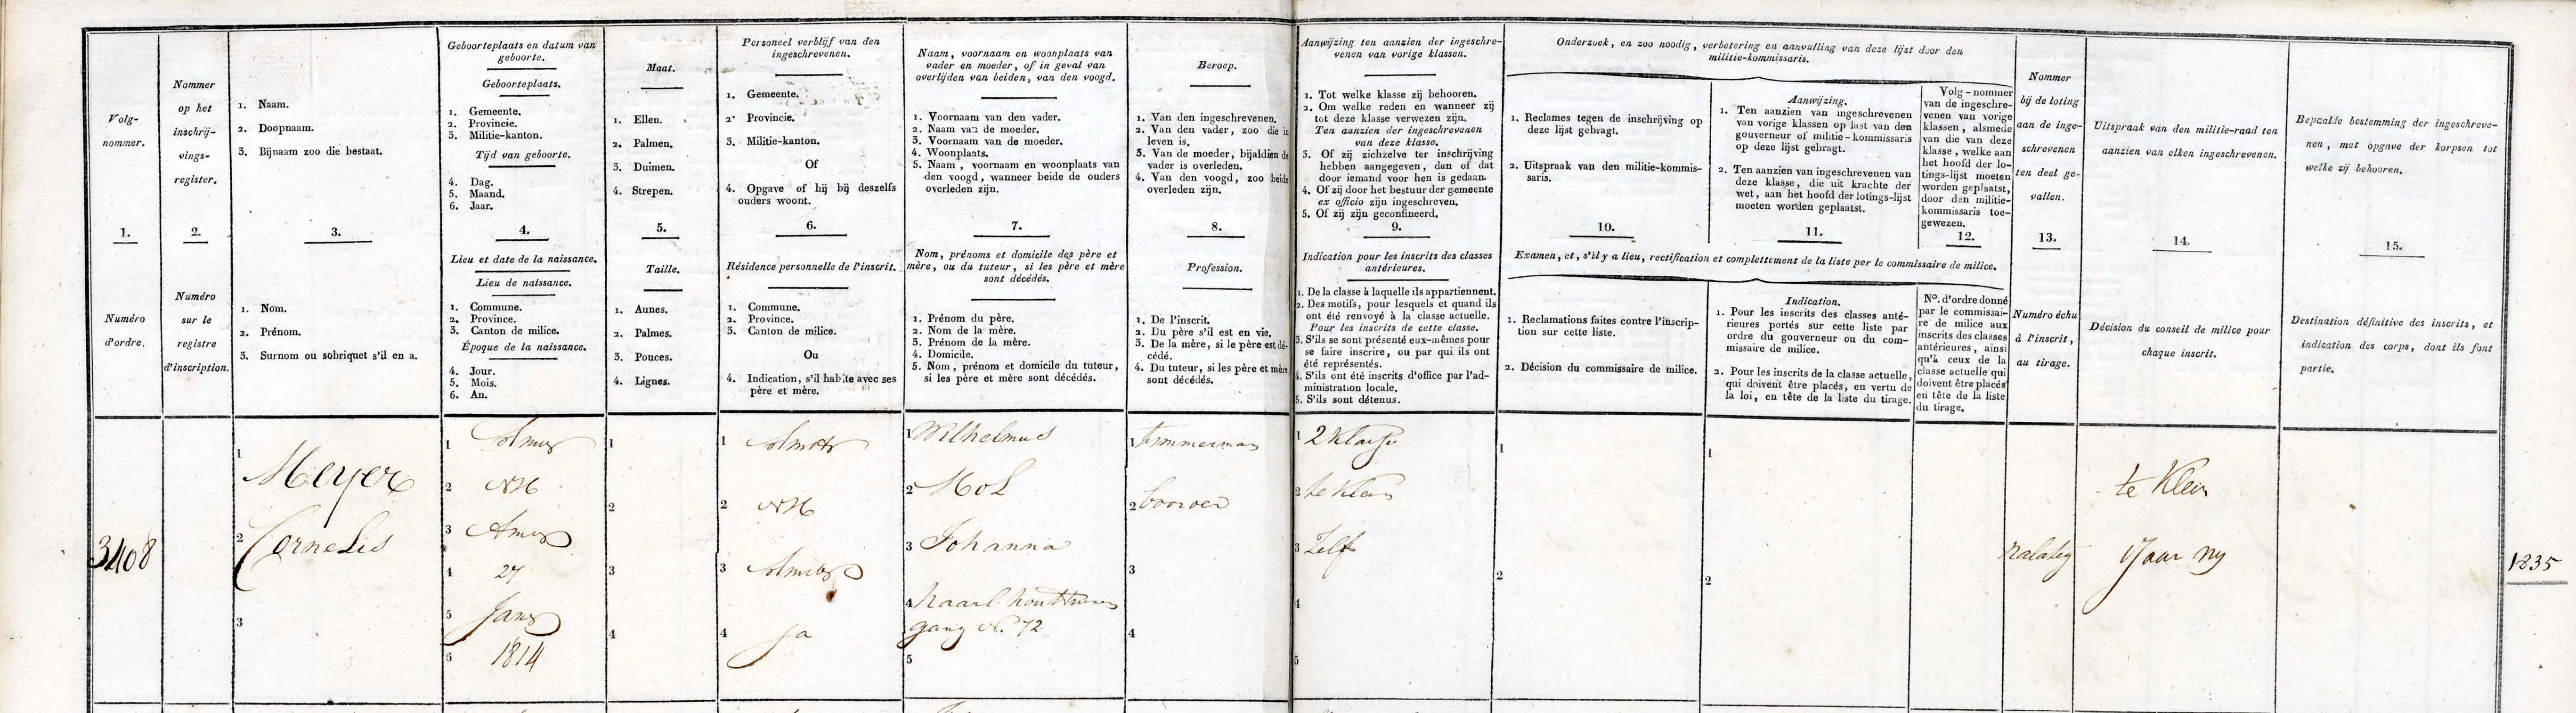 Volg-
nommer.
1.
Numéro
d'ordre.
Nommer
op het
inschrij-
vings-
register.
2.
Numéro
sur le
registre
d'inscription.
1. Naam.
2. Doopnaam.
3. Bijnaam zoo die bestaat.
3.
1. Nom.
2. Prénom.
3. Surnom ou sobriquet s'il en a.
Geboorteplaats en datum van
geboorte.
Geboorteplaats.
1. Gemeente.
2. Provincie.
3. Militie-kanton.
Tijd van geboorte.
4. Dag.
5. Maand.
6. Jaar.
4.
Lieu et date de la naissance.
Lieu de naissance.
1. Commune.
2. Province.
3. Canton de milice.
Époque de la naissance.
4. Jour.
5. Mois.
6. An.
Maat.
1. Ellen.
2. Palmen.
3. Duimen.
4. Strepen.
5.
Taille.
1. Aunes.
2. Palmes.
3. Pouces.
4. Lignes.
Personeel verblijf van den
ingeschrevenen.
1. Gemeente.
2. Provincie.
3. Militie-kanton.
Of
4. Opgave of hij bij deszelfs
ouders woont.
6.
Résidence personnelle de l'inscrit.
1. Commune.
2. Province.
3. Canton de milice.
Ou
4. Indication, s'il habite avec ses
père et mère.
Naam, voornaam en woonplaats van
vader en moeder, of in geval van
overlijden van beiden, van den voogd.
1. Voornaam van den vader.
2. Naam van de moeder.
3. Voornaam van de moeder.
4. Woonplaats.
5. Naam, voornaam en woonplaats van
den voogd, wanneer beide de ouders
overleden zijn.
7.
Nom, prénoms et domicile des père et
mère, ou du tuteur, si les père et mère
sont décédés.
1. Prénom du père.
2. Nom de la mère.
3. Prénom de la mère.
4. Domicile.
5. Nom, prénom et domicile du tuteur,
si les père et mère sont décédés.
Beroep.
1. Van den ingeschrevenen.
2. Van den vader, zoo die in
leven is.
3. Van de moeder, bijaldien de
vader is overleden.
4. Van den voogd, zoo beide
overleden zijn.
8.
Profession.
1. De l'inscrit.
2. Du père s'il est en vie.
3. De la mère, si le père est dé-
cédé.
4. Du tuteur, si les père et mère
sont décédés.
Aanwijzing ten aanzien der ingeschre-
venen van vorige klassen.
1. Tot welke klasse zij behooren.
2. Om welke reden en wanneer zij
tot deze klasse verwezen zijn.
Ten aanzien der ingeschrevenen
van deze klasse.
3. Of zij zichzelve ter inschrijving
hebben aangegeven, dan of dat
door iemand voor hen is gedaan.
4. Of zij door het bestuur der gemeente
ex officio zijn ingeschreven.
5. Of zij zijn geconfineerd.
9.
Indication pour les inscrits des classes
antérieures.
1. De la classe à laquelle ils appartiennent.
2. Des motifs, pour lesquels et quand ils
ont été renvoyé à la classe actuelle.
Pour les inscrits de cette classe.
3. S'ils se sont présenté eux-mêmes pour
se faire inscrire, ou par qui ils ont
été représentés.
4. S'ils ont été inscrits d'office par l'ad-
ministration locale.
5. S'ils sont détenus.
Onderzoek, en zoo noodig, verbetering en aanvulling van deze lijst door den
militie-kommissaris.
1. Reclames tegen de inschrijving op
deze lijst gebragt.
2. Uitspraak van den militie-kommis-
saris.
10.
Aanwijzing.
1. Ten aanzien van ingeschrevenen
van vorige klassen op last van den
gouverneur of militie-kommissaris
op deze lijst gebragt.
2. Ten aanzien van ingeschrevenen van
deze klasse, die uit krachte der
wet, aan het hoofd der lotings-lijst
moeten worden geplaatst.
11.
Volg-nommer
van de ingeschre-
venen van vorige
klassen, alsmede
van die van deze
klasse, welke aan
het hoofd der lo-
tings-lijst moeten
worden geplaatst,
door den militie-
kommissaris toe-
gewezen.
12.
Examen, et, s'il y a lieu, rectification et complettement de la liste par le commissaire de milice.
1. Reclamations faites contre l'inscrip-
tion sur cette liste.
2. Décision du commissaire de milice.
Indication.
1. Pour les inscrits des classes anté-
rieures portés sur cette liste par
ordre du gouverneur ou du com-
missaire de milice.
2. Pour les inscrits de la classe actuelle,
qui doivent être placés, en vertu de
la loi, en tête de la liste du tirage.
No. d'ordre donné
par le commissai-
re de milice aux
inscrits des classes
antérieures, ainsi
qu'à ceux de la
classe actuelle qui
doivent être placés
en tête de la liste
du tirage.
Nommer
bij de loting
aan de inge-
schrevenen
ten deel ge-
vallen.
13.
Numéro échu
à l'inscrit,
au tirage.
Uitspraak van den militie-raad ten
aanzien van elken ingeschrevenen.
14.
Décision du conseil de milice pour
chaque inscrit.
Bepaalde bestemming der ingeschreve-
nen, met opgave der korpsen tot
welke zij behooren.
15.
Destination définitive des inscrits, et
indication des corps, dont ils font
partie.
3408
1 Meyer
2 Cornelis
3
1 Ams
2 NH
3 Ams
4 27
5 Jan
6 1814
1
2
3
4
1 Amst
2 NH
3 Ams
4 Ja
1 Wilhelmus
2 Mol
3 Johanna
4 haarl. houttuinen
gang No. 72
5
1 timmerman
2 boven
3
4
1 2 Klasse
2 te Klein
3 Zelf
4
5
1
2
1
2
nalatig
te Klein
1 Jaar vrij
1835